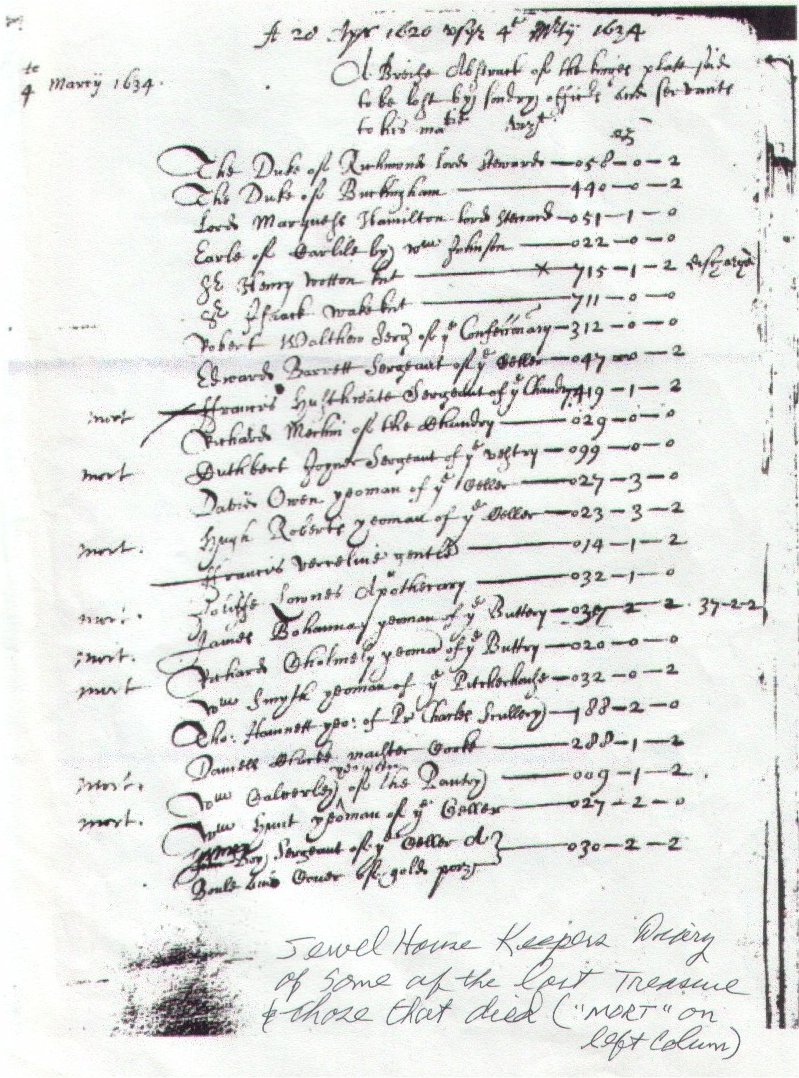 A 20 Apr 1620 usqz 4º Mtij 1634
to
4 Marcij 1634.
A Breife Abstract of the kinges plate said
to be lost by sondry officers and servants
to his matie vizt
oz
The Duke of Richmond lord Steward — 058 — 0 — 2
The Duke of Buckingham — 440 — 0 — 2
Lord Marquess Hamilton lord Steward — 051 — 1 — 0
Earle of Carlile by Wm Johnson — 022 — 0 — 0
Sr Henry Wotton knt — x — 715 — 1 — 2 discharged
Sr Isaack Wake knt — 711 — 0 — 0
Robert Walthew Serg of ye Confectionary — 312 — 0 — 0
Edward Barrett Sergeant of ye Celler — 047 — 0 — 2
mort Francis Sergeant of ye Chaundry 419 — 1 — 2
Richard of the Chaundry — 029 — 0 — 0
mort Cuthbert Joyner Sergeant of ye Vestry — 099 — 0 — 0
David Owen yeoman of ye Celler — 027 — 3 — 0
Hugh Roberts yeoman of ye Celler — 023 — 3 — 2
mort. Francis Verseline gentle — 014 — 1 — 2
Jolliffe Lownes Apothecary — 032 — 1 — 0
mort. James Bohannay yeoman of ye Buttery — 037 — 2 — 2 37-2-2
mort. Richard Cholmely yeoma of ye Buttry — 020 — 0 — 0
mort Wm Smyth yeoman of ye Pitcherhouse — 032 — 0 — 2
Tho: Hamnett yeo: of Pr Charles Scullery — 188 — 2 — 0
Daniell Clarke master Cooke — 288 — 1 — 2
mort. Wm Calverley yeoman of the Pantry — 009 — 1 — 2
mort. Wm Hunt yeoman of ye Celler — 027 — 2 — 0
Roy Sergeant of ye Celler A
Boule and Cover of gold poiz — 030 — 2 — 2
Jewel House Keepers Diary
of Some of the lost Treasure
& those that died ("MORT" on
left Colum)